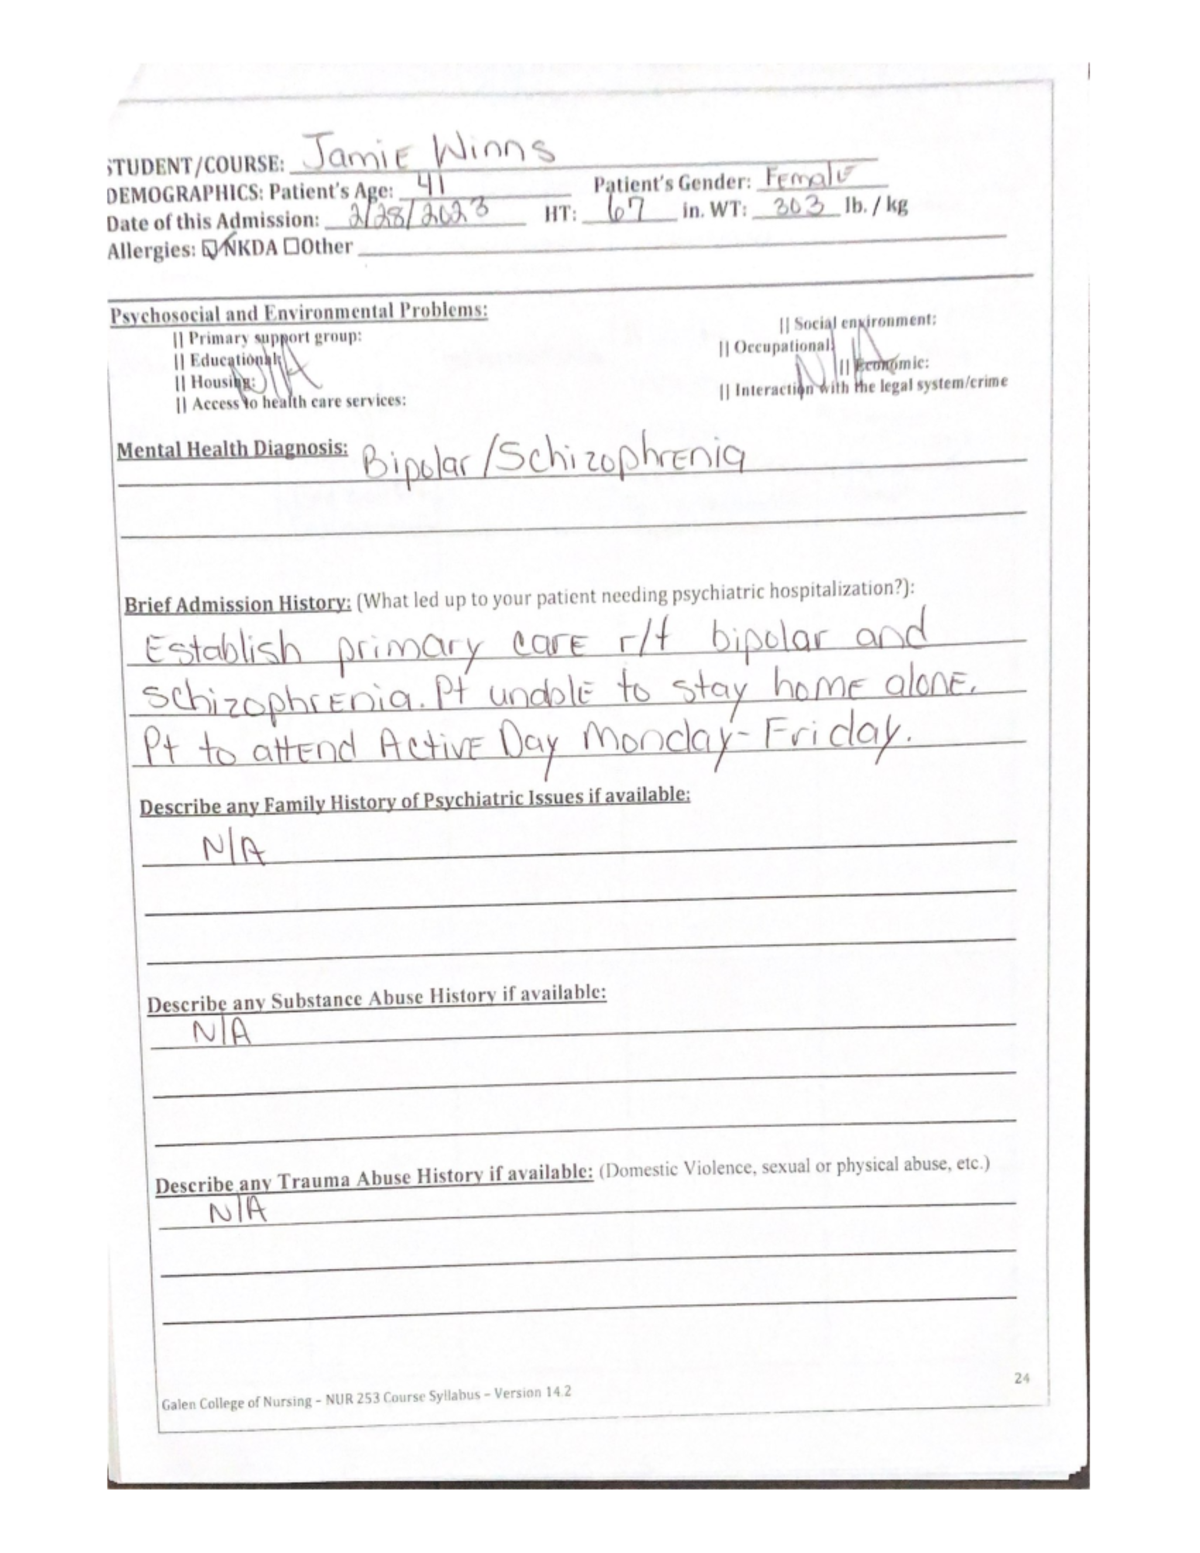 STUDENT/COURSE: Jamie Winns
DEMOGRAPHICS: Patient's Age: 41 Patient's Gender: Female
Date of this Admission: 2/28/2023 HT: 67 in. WT: 303 lb. / kg
Allergies: ☑NKDA ☐Other
Psychosocial and Environmental Problems:
|| Primary support group:
|| Educational:
|| Housing: N/A
|| Access to health care services:
|| Social environment:
|| Occupational: N/A
|| Economic:
|| Interaction with the legal system/crime
Mental Health Diagnosis: Bipolar/Schizophrenia
Brief Admission History: (What led up to your patient needing psychiatric hospitalization?):
Establish primary care r/t bipolar and
schizophrenia. Pt unable to stay home alone.
Pt to attend Active Day Monday-Friday.
Describe any Family History of Psychiatric Issues if available:
N/A
Describe any Substance Abuse History if available:
N/A
Describe any Trauma Abuse History if available: (Domestic Violence, sexual or physical abuse, etc.)
N/A
24
Galen College of Nursing – NUR 253 Course Syllabus – Version 14.2